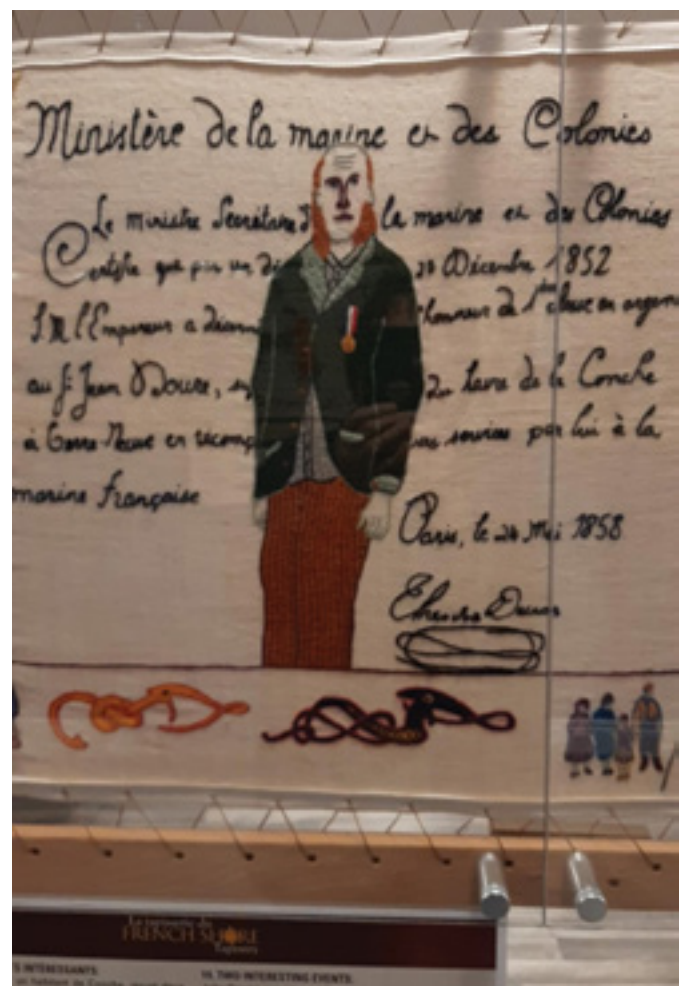 Ministère de la marine et des Colonies
Le ministre Secrétaire d la marine et des Colonies
Certifie que par un dé 20 Décembre 1852
S.M l'Empereur a décern d'honneur de 1ère classe en argent
au Sr Jean Doure, du havre de la Conche
à Terre-Neuve en récomp services par lui à la
marine française
Paris, le 24 Mai 1858
FRENCH SHORE
S INTÉRESSANTS
un habitant de Conche, reçut
TWO INTERESTING EVENTS